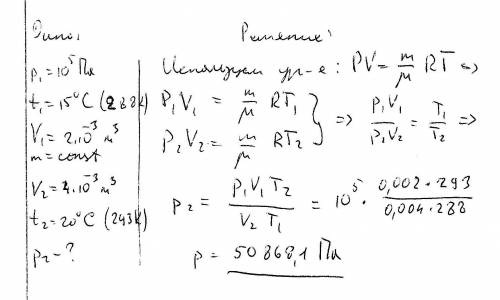 Дано:
p₁=10⁵ Па
t₁=15°C (288K)
V₁=2.10⁻³ м³
m=const
V₂=4.10⁻³ м³
t₂=20°C (293K)
p₂-?
Решение:
Используем ур-е: PV = m/μ RT =>
P₁V₁ = m/μ RT₁
P₂V₂ = m/μ RT₂ } => P₁V₁/P₂V₂ = T₁/T₂ =>
p₂ = P₁V₁T₂/V₂T₁ = 10⁵ · 0,002·293/0,004·288
p = 50868,1 Па